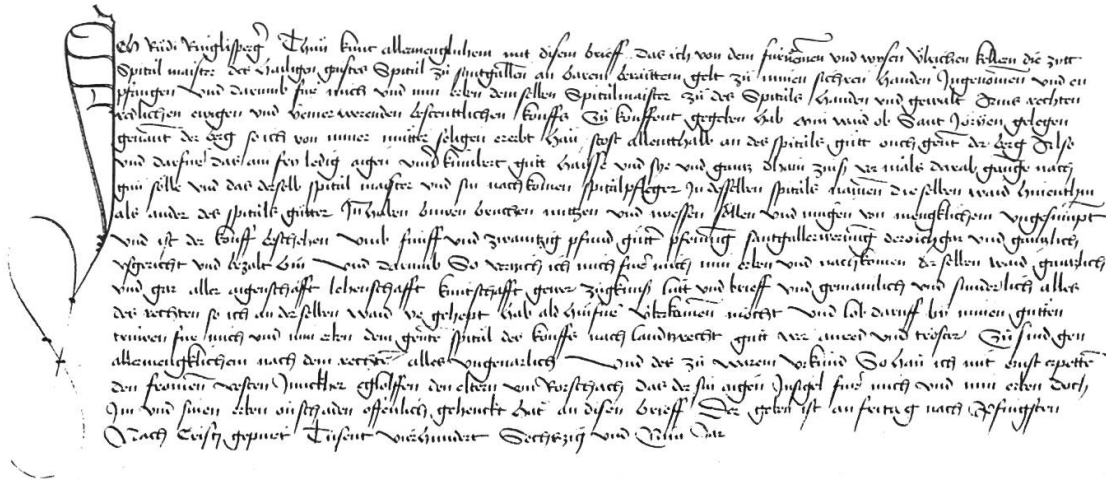 Ich Rüdi Ringlisperg Thun kunt allermenglichem mit disem brieff Das ich von dem fürnemen und wysen Ulrichen kellern die zitt
Spittal maister des hailigen gaistes Spital zu santgallen an baren beraitten gelt zu minen sichren handen Ingenomen und en
pfangen Und darumb für mich und min erben dem selben Spitalmaister zu des Spitals handen und gewalt Ains rechten
redlichen ewigen und yemer werenden bestenttlichen kouffs Zu kouffent gegeben hab min waid ob Sant Joryen gelegen
genant der berg so ich von miner mutter seligen ererbt han stost allenthalb an des spitals gutt ouch genant der berg
und darfür das ain fry ledig aigen und gutt haisse und sye und gantz dhain zins vormals darab gange nach
gan sölle Und das derselb spital maister und sin nachkomen spitalpfleger In desselben spitals namen die selben waid hinenthin
als ander des spitals gütter Inhaben buwen bruchen nutzen und niessen söllen und mugen von mengklichem ungesumpt
Und ist der kouff beschehen umb fünff und zwaintzig pfund gutter pfenning santgaller werung dero ich gar und gantzlich
ussgericht und bezalt bin Und darumb So verzich ich mich für mich min erben und nachkomen der selben waid gantzlich
und gar aller aigenschafft lehenschafft kuntschafft gewer zügknuss lütt und brieff und gemainlich und sunderlich alles
des rechten so ich an der selben waid ye gehept hab ald hinfür überkomen möcht Und lob daruff by minen gutten
trüwen für mich und min erben dem spital des kouffs nach landtzrecht gutt wer und tröster zu sind gen
allermengklichem nach dem rechten alles ungevarlich Und des zu warem urkund So han ich mit ernst erpetten
den fromen vesten Junckher egloffen den eltern von Rorschach das der sin aigen Insigel für mich und min erben doch
Im und sinen erben on schaden offenlich gehenckt hat an disen brieff Der geben ist an fritag nach Pfingsten
Nach Cristi gepurt Tusent vierhundert Sechtzig und Nün Jar